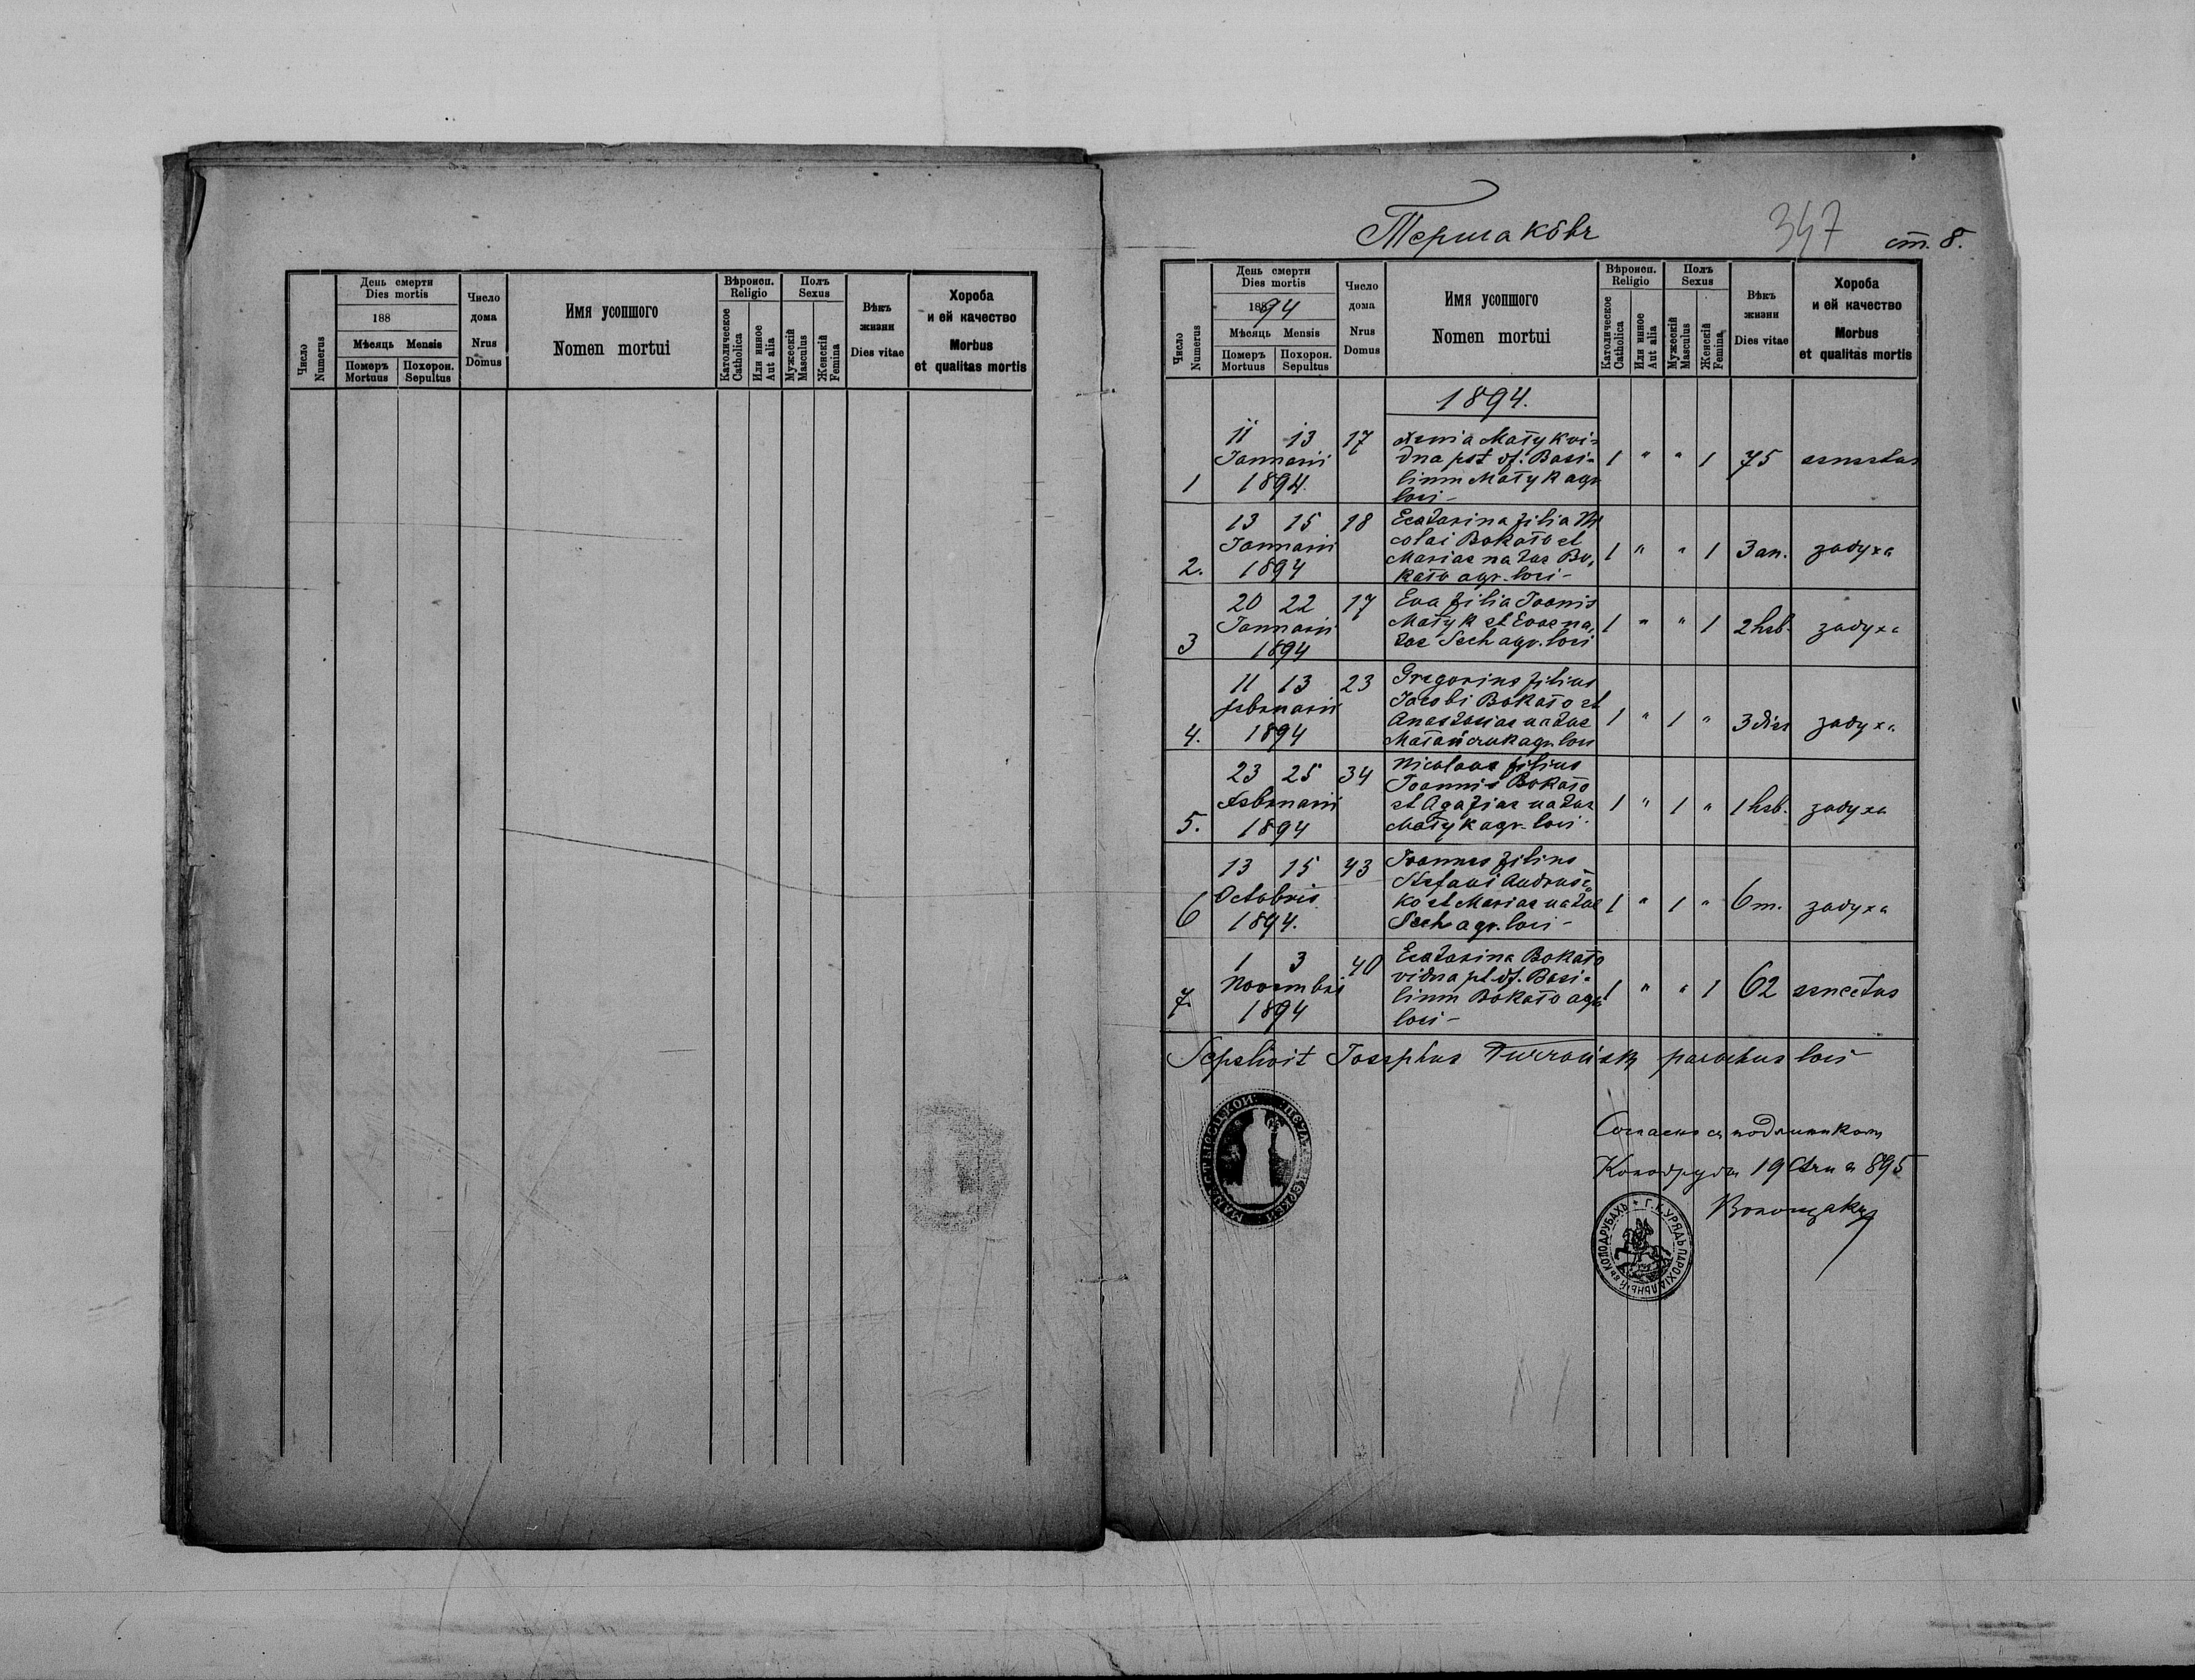 Число
Numerus
День смерти
Dies mortis
188
Мѣсяць Mensis
Померъ
Mortuus
Похорон.
Sepultus
Число
дома
Nrus
Domus
Имя усопшого
Nomen mortui
Вѣроисп.
Religio
Католическое
Catholica
Или инное
Aut alia
Полъ
Sexus
Мужескій
Masculus
Женскій
Femina
Вѣкъ
жизни
Dies vitae
Хороба
и ей качество
Morbus
et qualitas mortis
Тершаковъ
347
ст. 8.
Число
Numerus
День смерти
Dies mortis
1894
Мѣсяць Mensis
Померъ
Mortuus
Похорон.
Sepultus
Число
дома
Nrus
Domus
Имя усопшого
Nomen mortui
Вѣроисп.
Religio
Католическое
Catholica
Или инное
Aut alia
Полъ
Sexus
Мужескій
Masculus
Женскій
Femina
Вѣкъ
жизни
Dies vitae
Хороба
и ей качество
Morbus
et qualitas mortis
1894.
1 11 13 Januarii 1894. 17
Xenia Matyk vi-
dua pst df. Basi-
lium Matyk agr
loci -
1 " " 1 75 senectus
2. 13 15 Januarii 1894 18
Ecatarina filia Ni
colai Bokało et
Mariae natae Bo-
kało agr. loci -
1 " " 1 3 an. задуха
3 20 22 Januarii 1894 17
Eva filia Joanis
Matyk et Evae na-
tae Sech agr. loci
1 " " 1 2 heb. задуха
4. 11 13 Februarii 1894 23
Gregorius filius
Jacobi Bokało et
Anastasiae natae
agr. loci
1 " 1 " 3 dies задуха
5. 23 25 Februarii 1894 34
Nicolaus filius
Joannis Bokało
et Agafiae natae
Matyk agr. loci
1 " 1 " 1 heb. задуха
6 13 15 Octobris 1894. 43
Joannes filius
Stefani Andrusz-
ko et Mariae natae
Sech agr. loci -
1 " 1 " 6 m. задуха
7. 1 3 Novembris 1894 40
Ecatarina Bokało
vidua pt df. Basi-
lium Bokało agr
loci -
1 " " 1 62 senectus
Sepelivit Josephus parochus loci
Согласно съ подлинникомъ
Колодрубы 19 895
Волощакъ
Г.К. УРЯДЪ ПАРОХІАЛЬНЫЙ въ КОЛОДРУБАХЪ